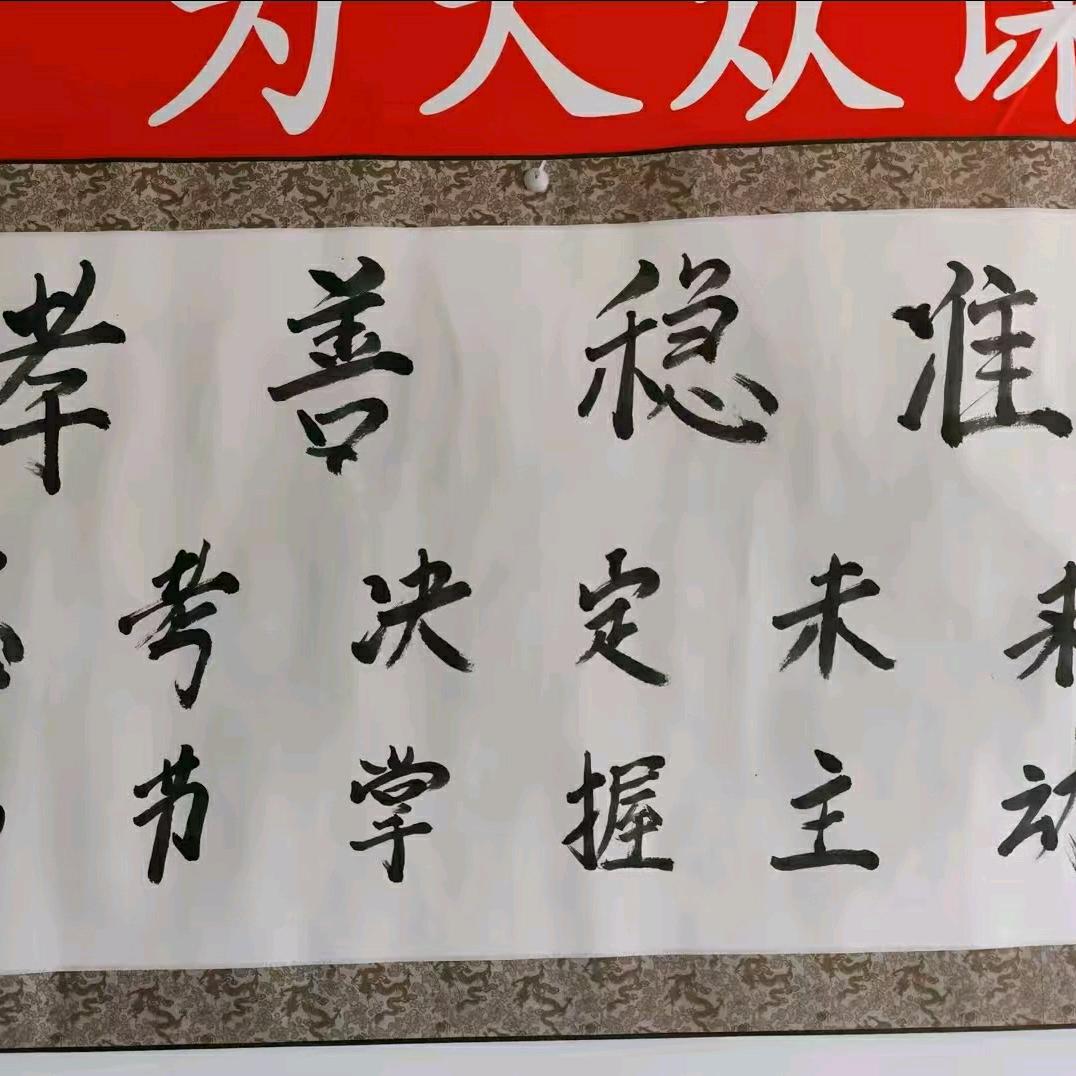 为大众
孝善稳准
考决定未来
节掌握主动